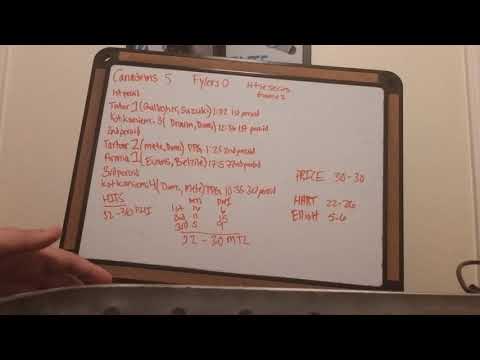 Canadiens 5 Flyers 0 Htse series
game 2
1st period
Tatar 1 (Gallagher, Suzuki) 1:02 1st period
Kotkaniemi 3 ( Drouin, Dom) 12:36 1st period
2nd period
Tatar 2 (mete, Dom) PPG 1:25 2nd period
Armia 1 (Evans, Belzile) 17:57 2nd period
3rd period
Kotkaniemi 4 ( Dom, Mete) PPG 10:36 3rd period
PRICE 30-30
HITS MTL PHI
1st 6
2nd 11 15
3rd 5 9
52-36 PHI
32 - 30 MTL
HART 22-26
Elliott 5-6